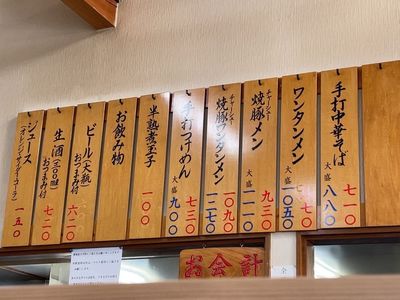 手打中華そば 七一〇
大盛 八八〇
ワンタンメン
大盛 一〇五〇
チャーシュー
焼豚メン 九三〇
大盛 一一〇〇
チャーシュー
焼豚ワンタンメン 一〇九〇
大盛 一二七〇
手打つけめん 七三〇
大盛 九〇〇
半熟煮玉子 一〇〇
お飲み物
ビール(大瓶)
おつまみ付 六二〇
生酒(三〇〇ml)
おつまみ付 七二〇
ジュース
(オレンジ・サイダー・コーラ) 一五〇
お会計